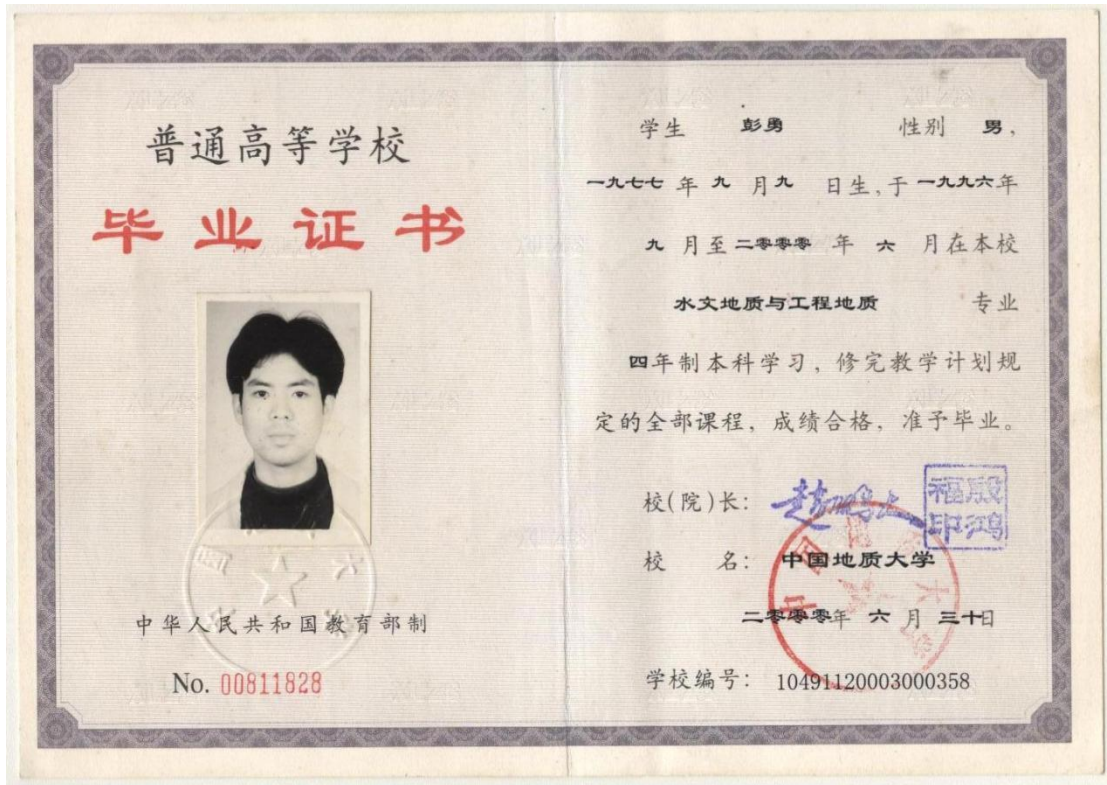 普通高等学校
毕业证书
中华人民共和国教育部制
No. 00811828
学生 彭勇 性别 男,
一九七七 年 九 月 九 日生,于 一九九六年
九 月至 二零零零 年 六 月在本校
水文地质与工程地质 专业
四年制本科学习,修完教学计划规
定的全部课程,成绩合格,准予毕业。
校(院)长: 赵鹏大
殷鸿福印
校 名: 中国地质大学
二零零零年 六 月 三十日
学校编号: 10491120003000358